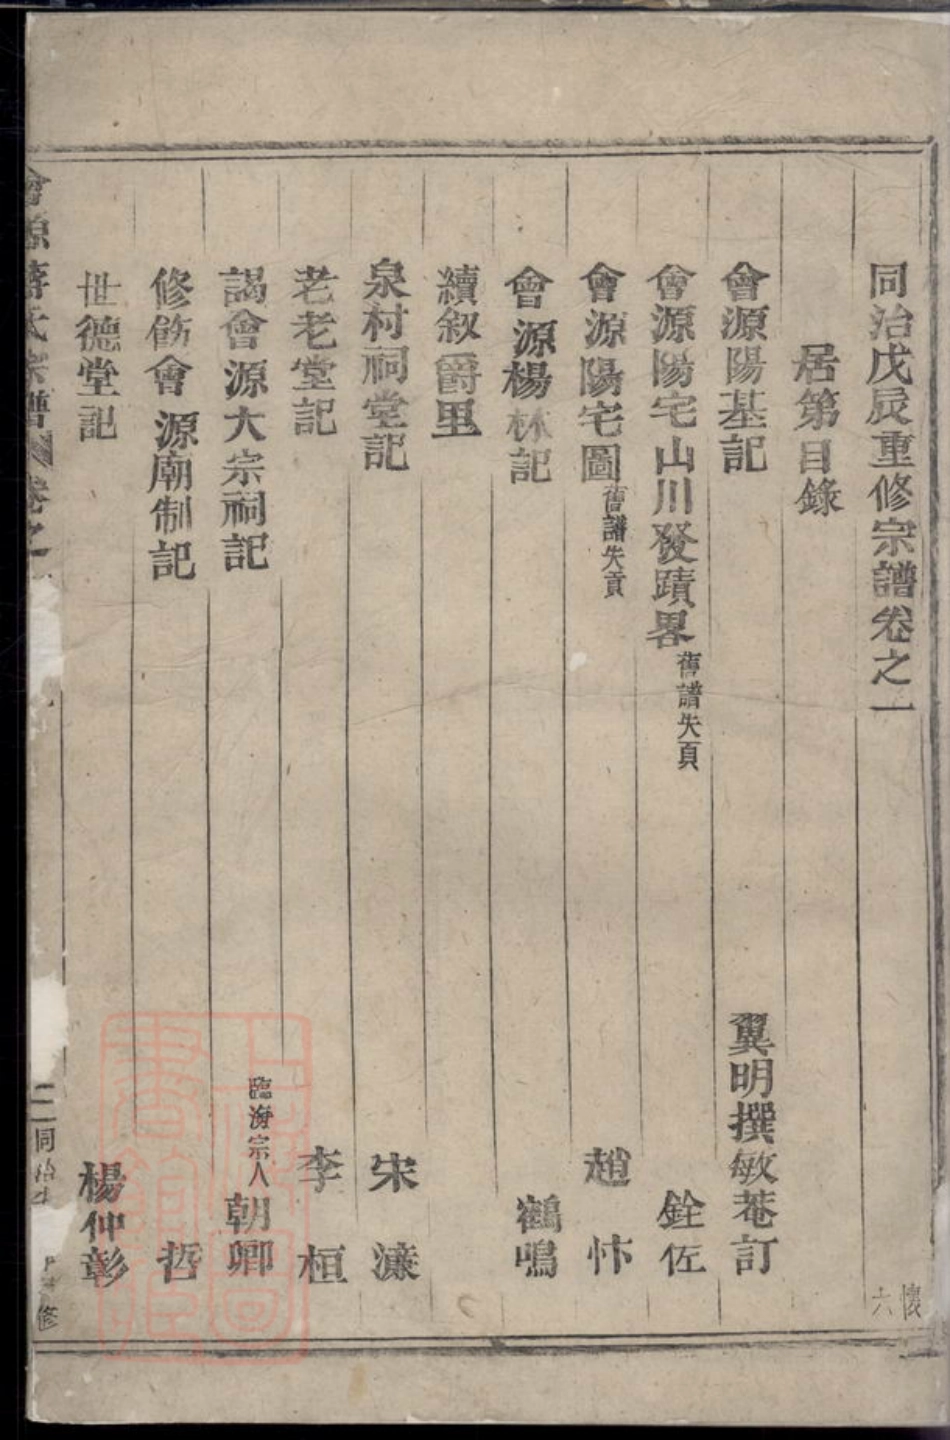 同治戊辰重修宗譜卷之一
懷六
居第目錄
會源陽基記 翼明撰敏菴訂
會源陽宅山川發蹟畧 舊譜失頁 銓佐
會源陽宅圖 舊譜失頁 趙忭
會源楊林記 鶴鳴
續叙爵里
泉村祠堂記 宋濂
老老堂記 李桓
謁會源大宗祠記 臨海宗人朝卿
修飭會源廟制記 哲
世德堂記 楊仲彰
氏宗譜 卷之
二 同治 修